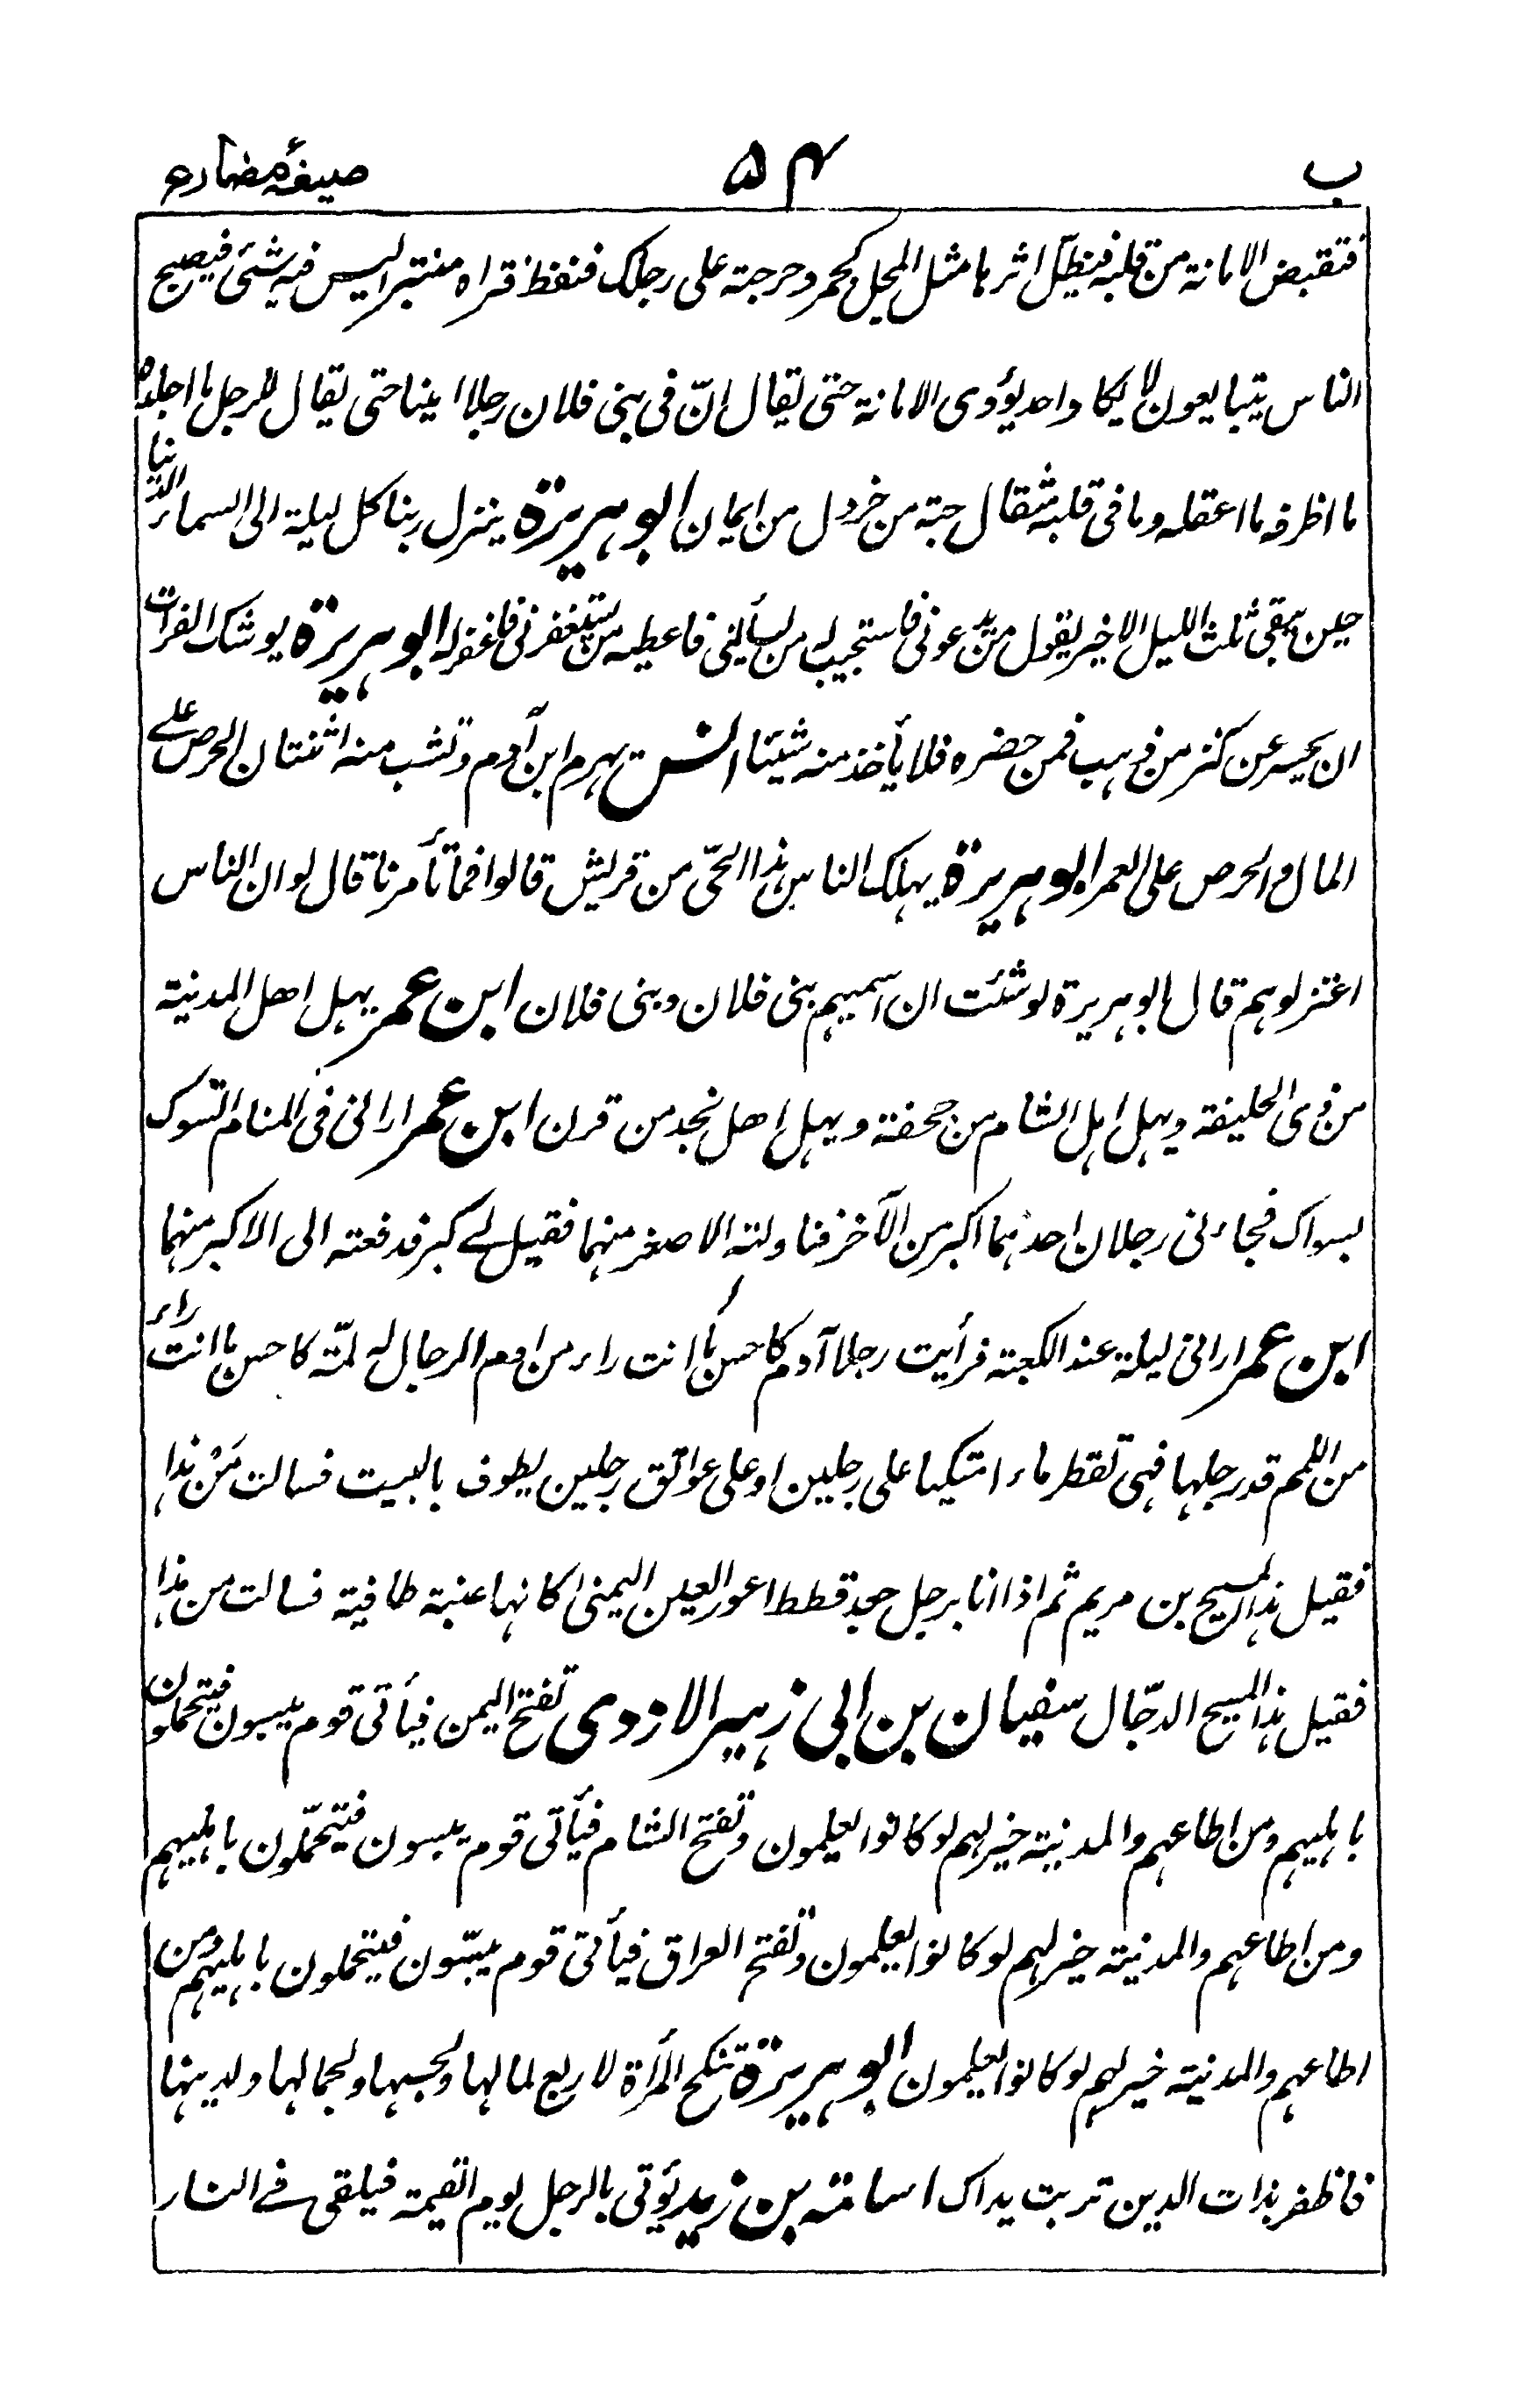 ب ۵۴ صیغۂ مضارع
فتقبض الامانة من قلبه فیظلّ اثرہا مثل المجل کجمر دحرجته علی رجلک فنفط فتراہ منتبرا لیس فیه شئ فیصبح
الناس یتبایعون لا یکاد احد یؤدی الامانة حتی یقال انّ فی بنی فلان رجلا امینا حتی یقال للرجل ما اجلدہ
ما اظرفه ما اعقله وما فی قلبه مثقال حبة من خردل من ایمان ابو ہریرة ینزل ربنا کل لیلة الی السماء الدنیا
حین یبقی ثلث اللیل الاخیر یقول من یدعونی فاستجیب له من یسألنی فاعطیه من یستغفرنی فاغفر له ابو ہریرة یوشک الفرات
ان یحسر عن کنز من ذہب فمن حضرہ فلا یأخذ منه شیئا انس یہرم ابن آدم وتشب منه اثنتان الحرص علے
المال والحرص علی العمر ابو ہریرة یہلک الناس ہذا الحیّ من قریش قالوا فما تأمرنا قال لو ان الناس
اعتزلوہم قال ابو ہریرة لو شئت ان اسمیہم بنی فلان وبنی فلان ابن عمر یہل اهل المدینة
من ذی الحلیفة ویہل اہل الشام من جحفة ویہل اهل نجد من قرن ابن عمر ارانی فی المنام اتسوک
بسواک فجاءنی رجلان احدہما اکبر من الآخر فناولته الاصغر منہما فقیل لے کبر فدفعته الی الاکبر منہما
ابن عمر ارانی لیلة عند الکعبة فرأیت رجلا آدم کاحسن ما انت راء من ادم الرجال له لمّة کاحسن ما انت راء
من اللمم قد رجلہا فہی تقطر ماء متکیا علی رجلین او علی عواتق رجلین یطوف بالبیت فسالت مَنْ ہذا
فقیل ہذا المسیح بن مریم ثم اذا انا برجل جعد قطط اعور العین الیمنی کانہا عنبة طافیة فسالت من ہذا
فقیل ہذا المسیح الدجّال سفیان بن ابی زہیر الازدی تفتح الیمن فیأتی قوم یبسون فیتحملون
باہلیہم ومن اطاعہم والمدینة خیر لہم لو کانوا یعلمون وتفتح الشام فیأتی قوم یبسون فیتحمّلون باہلیہم
ومن اطاعہم والمدینة خیر لہم لو کانوا یعلمون وتفتح العراق فیأتی قوم یبسّون فیتحملون باہلیہم ومن
اطاعہم والمدینة خیر لہم لو کانوا یعلمون ابو ہریرة تنکح المرأة لاربع لمالہا ولحسبہا ولجمالہا ولدینہا
فاظفر بذات الدین تربت یداک اسامة بن زید یؤتی بالرجل یوم القیمة فیلقی فے النار